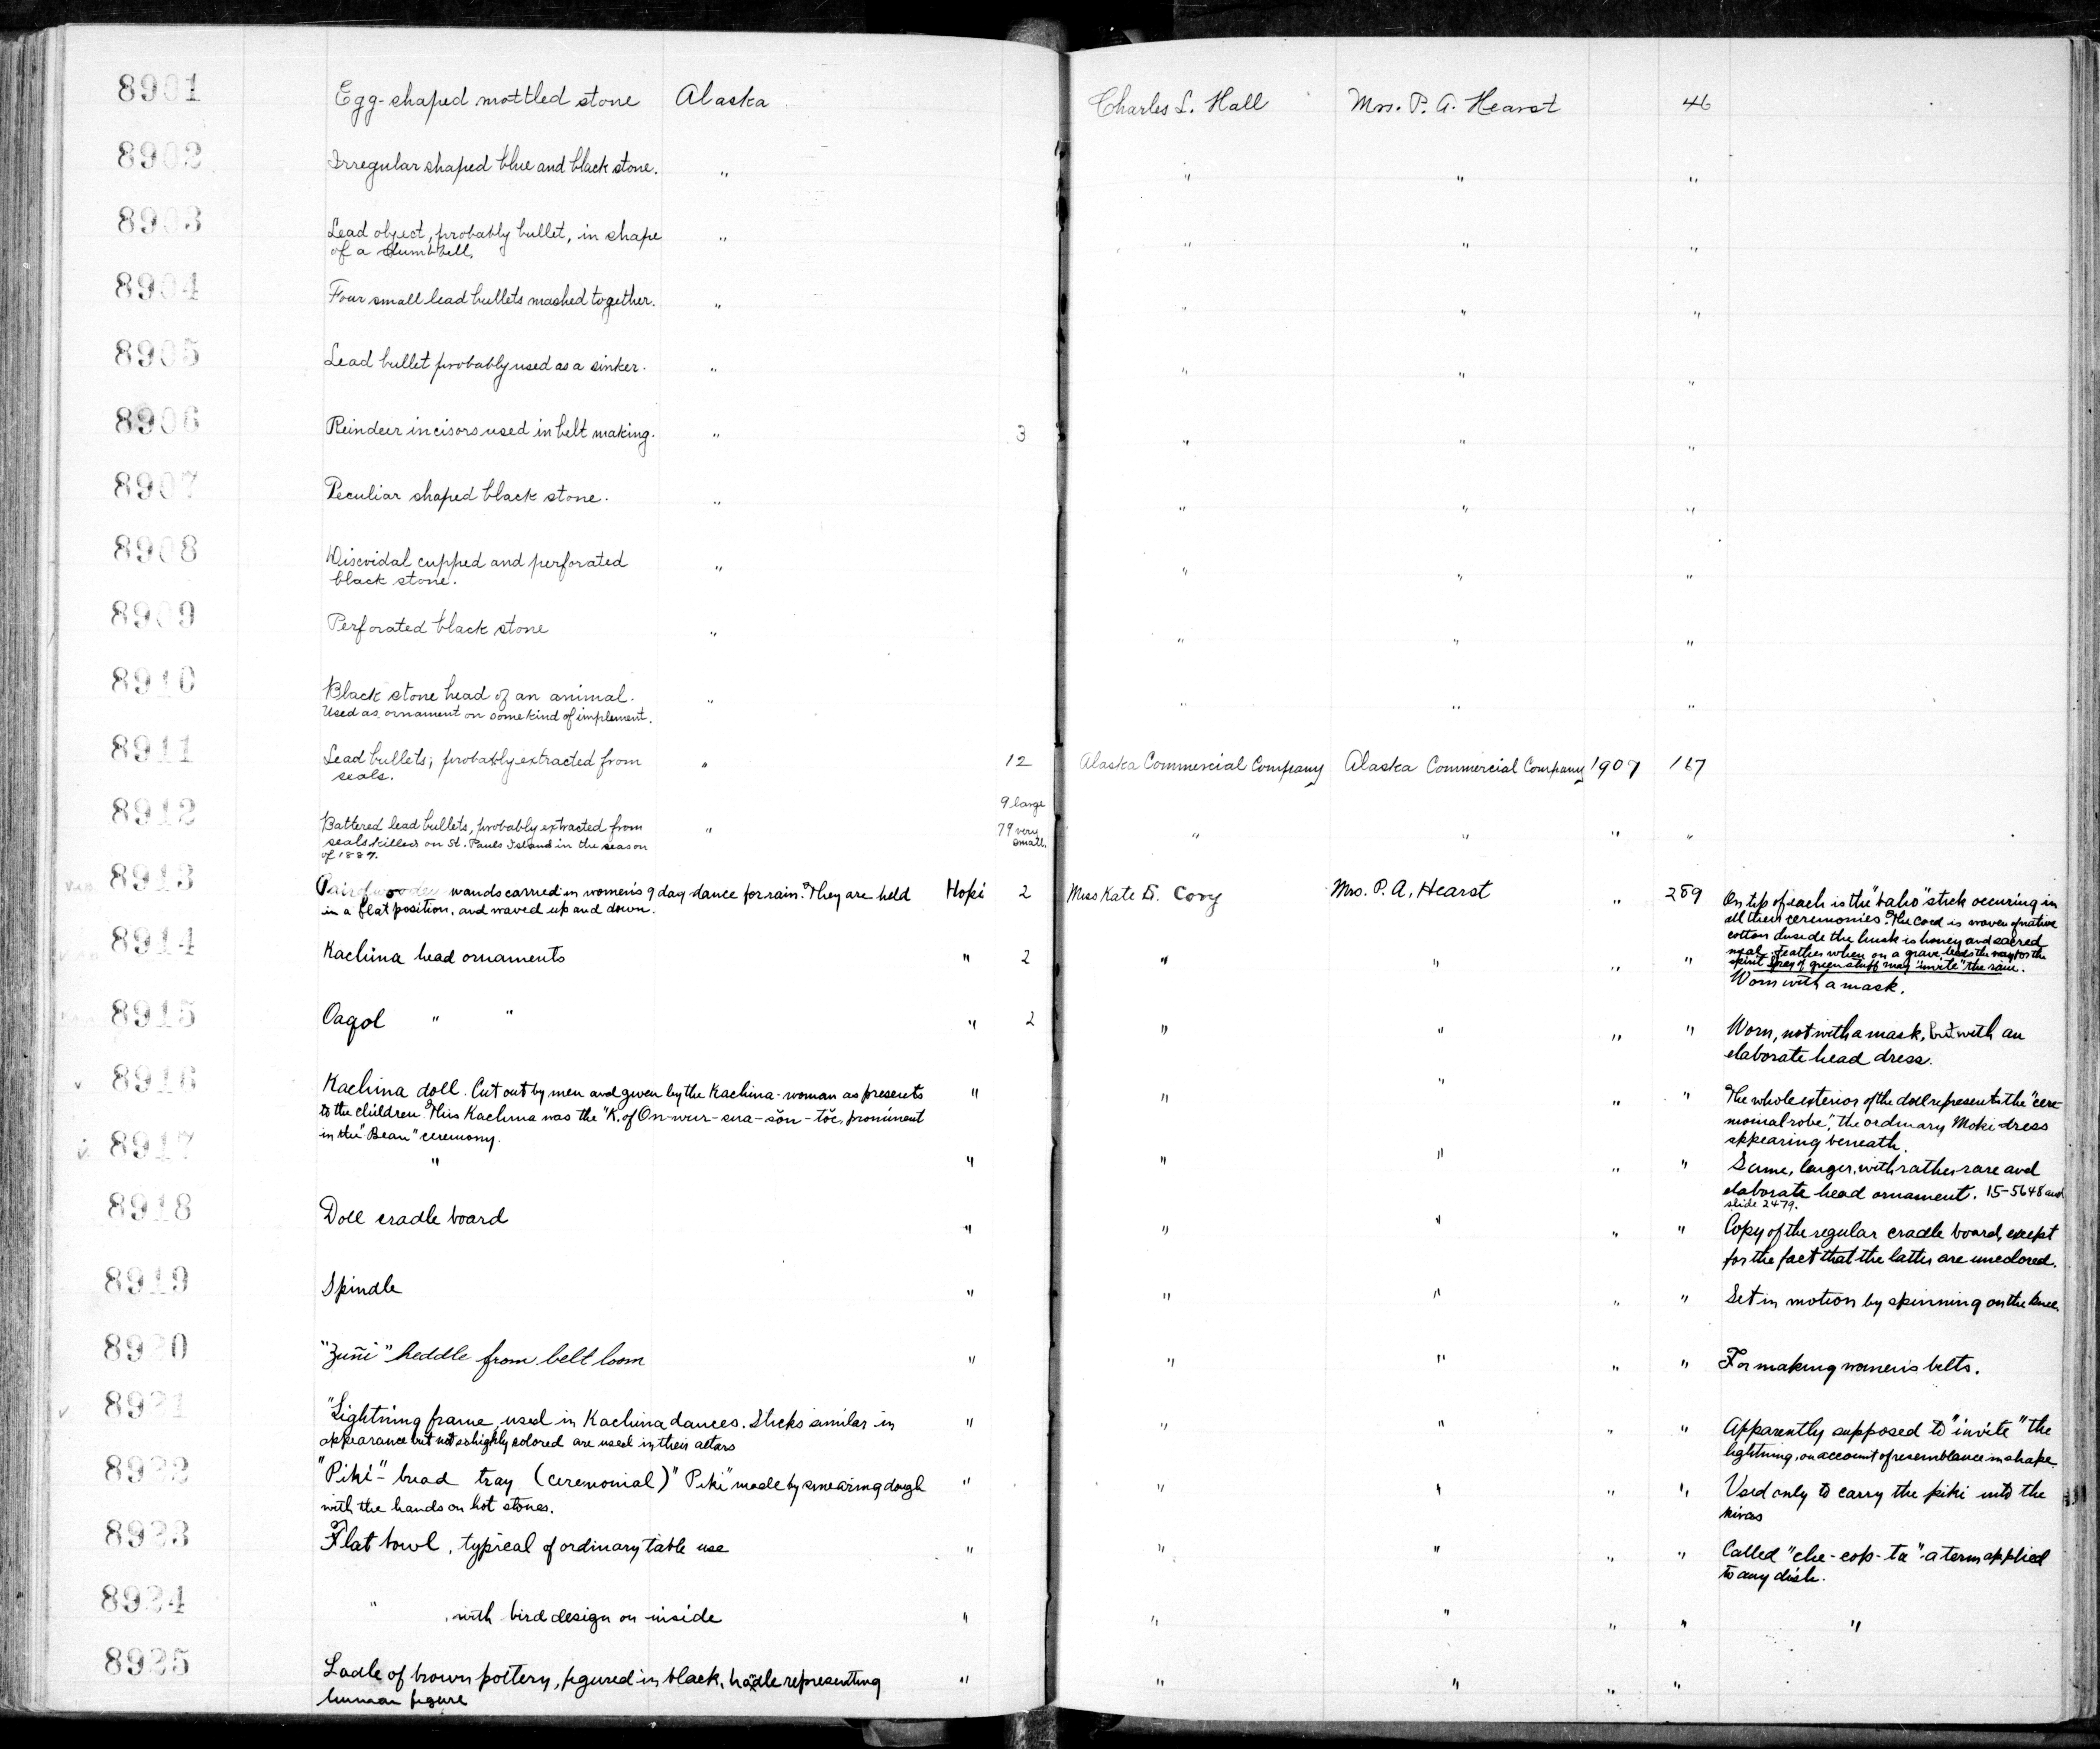 8901 Egg-shaped mottled stone Alaska Charles L. Hall Mrs. P. A. Hearst 46
8902 Irregular shaped blue and black stone. " " " "
8903 Lead object, probably bullet, in shape " " " "
of a dumbbell.
8904 Four small lead bullets mashed together. " " " "
8905 Lead bullet probably used as a sinker. " " " "
8906 Reindeer incisors used in belt making. " 3 " " "
8907 Peculiar shaped black stone. " " " "
8908 Discoidal cupped and perforated " " " "
black stone.
8909 Perforated black stone " " " "
8910 Black stone head of an animal. " " " "
Used as ornament on some kind of implement.
8911 Lead bullets; probably extracted from " 12 Alaska Commercial Company Alaska Commercial Company 1907 167
seals.
8912 9 large
Battered lead bullets, probably extracted from " 79 very " " " "
seals killed on St. Pauls Island in the season small.
of 1887.
8913 Pair of wooden wands carried in women's 9 day dance for rain. They are held Hopi 2 Miss Kate D. Cory Mrs. P. A. Hearst " 289 On tip of each is the "baho" stick occuring in
in a flat position, and waved up and down. all their ceremonies. The cord is woven of native
cotton. Inside the husk is honey and sacred
meal. Feather when on a grave leads the way for the
spirit. Spray of green stuff may "invite" the rain.
8914 Kachina head ornaments " 2 " " " " Worn with a mask.
8915 Oaqol " " " 2 " " " " Worn, not with a mask, but with an
elaborate head dress.
8916 Kachina doll. Cut out by men and given by the Kachina-woman as presents " " " " " The whole exterior of the doll represents the "cere-
to the children. This Kachina was the "K. of On-wur-sna-sŏn-tŏc, prominent monial robe", the ordinary Moki dress
in the "Bean" ceremony. appearing beneath.
8917 " " " " " " Same, larger, with rather rare and
elaborate head ornament. 15-5648 and
slide 2479.
8918 Doll cradle board " " " " " Copy of the regular cradle board, except
for the fact that the latter are uncolored.
8919 Spindle " " " " " Set in motion by spinning on the knee.
8920 "Zuñi" heddle from belt loom " " " " " For making women's belts.
8921 "Lightning frame used in Kachina dances. Sticks similar in " " " " " Apparently supposed to "invite" the
appearance but not so highly colored are used in their altars lightning, on account of resemblance in shape.
8922 "Piki"-bread tray (ceremonial) "Piki" made by smearing dough " " " " " Used only to carry the piki into the
with the hands on hot stones. kivas
8923 Flat bowl, typical of ordinary table use " " " " " Called "che-cop-ta" - a term applied
to any dish.
8924 " , with bird design on inside " " " " " "
8925 Ladle of brown pottery, figured in black, hadle representing " " " " "
human figure